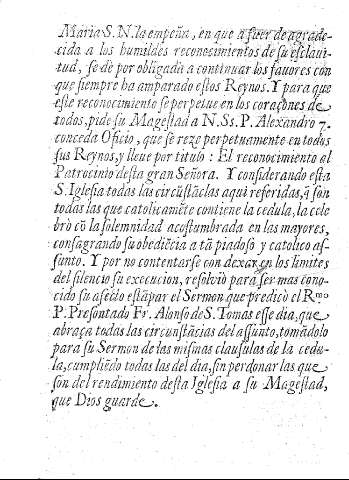 Maria S. N. la empeña, en que a fuer de agrade-
cida a los humildes reconocimientos de su esclaui-
tud, se dè por obligada a continuar los fauores con
que siempre ha amparado estos Reynos. Y para que
este reconocimiento se perpetue en los coraçones de
todos, pide su Magestad a N. SS. P. Alexandro 7.
conceda Oficio, que se reze perpetuamente en todos
sus Reynos, y lleue por titulo: El reconocimiento al
Patrocinio desta gran Señora. Y considerando esta
S. Iglesia todas las circũstãcias aqui referidas, q̃ son
todas las que catolicamẽte contiene la cedula, la cele
brò cõ la solemnidad acostumbrada en las mayores,
consagrando su obediẽcia a tã piadoso y catolico as-
sunto. Y por no contentarse con dexar en los limites
del silencio su execucion, resolviò para ser mas cono-
cido su afecto estãpar el Sermon que predicò el Rmo
P. Presentado Fr. Alonso de S. Tomas esse dia, que
abraça todas las circunstãcias del assunto, tomãdolo
para su Sermon de las mismas clausulas de la cedu-
la, cumpliẽdo todas las del dia, sin perdonar las que
son del rendimiento desta Iglesia a su Magestad,
que Dios guarde.